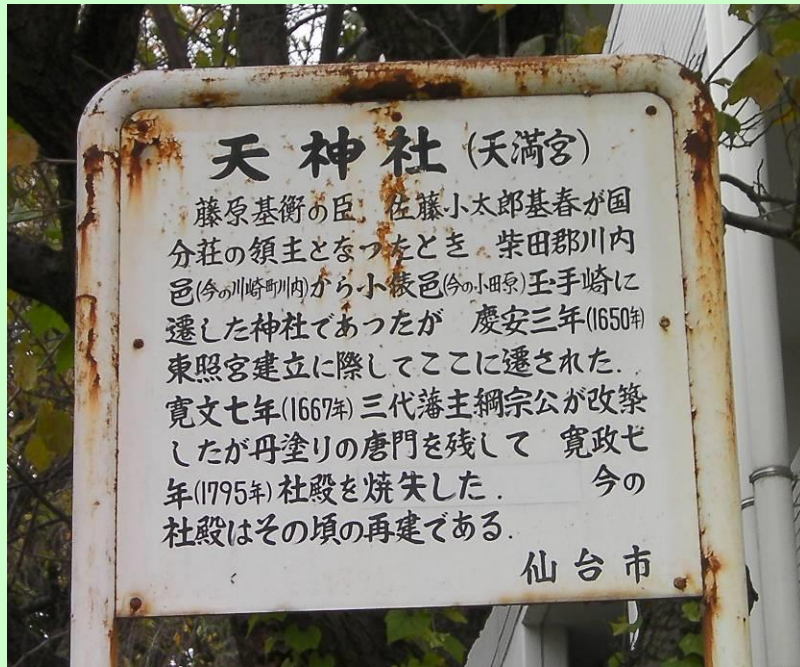 天神社(天満宮)
藤原基衡の臣 佐藤小太郎基春が国
分荘の領主となつたとき 柴田郡川内
邑(今の川崎町川内)から小俵邑(今の小田原)玉手崎に
遷した神社であつたが 慶安三年(1650年)
東照宮建立に際してここに遷された.
寛文七年(1667年)三代藩主綱宗公が改築
したが丹塗りの唐門を残して 寛政七
年(1795年)社殿を焼失した. 今の
社殿はその頃の再建である.
仙台市